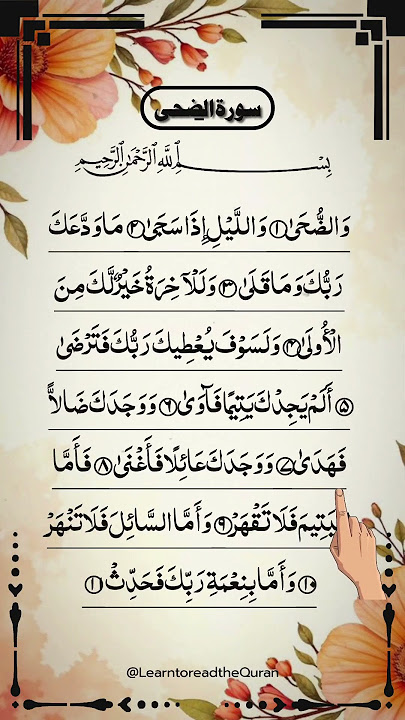 سورة الضحى
بِسْمِ ٱللَّهِ ٱلرَّحْمَٰنِ ٱلرَّحِيمِ
وَالضُّحَىٰ ۝١ وَاللَّيْلِ إِذَا سَجَىٰ ۝٢ مَا وَدَّعَكَ
رَبُّكَ وَمَا قَلَىٰ ۝٣ وَلَلْآخِرَةُ خَيْرٌ لَّكَ مِنَ
الْأُولَىٰ ۝٤ وَلَسَوْفَ يُعْطِيكَ رَبُّكَ فَتَرْضَىٰ
۝٥ أَلَمْ يَجِدْكَ يَتِيمًا فَآوَىٰ ۝٦ وَوَجَدَكَ ضَالًّا
فَهَدَىٰ ۝٧ وَوَجَدَكَ عَائِلًا فَأَغْنَىٰ ۝٨ فَأَمَّا
الْيَتِيمَ فَلَا تَقْهَرْ ۝٩ وَأَمَّا السَّائِلَ فَلَا تَنْهَرْ
۝١٠ وَأَمَّا بِنِعْمَةِ رَبِّكَ فَحَدِّثْ ۝١١
@LearntoreadtheQuran